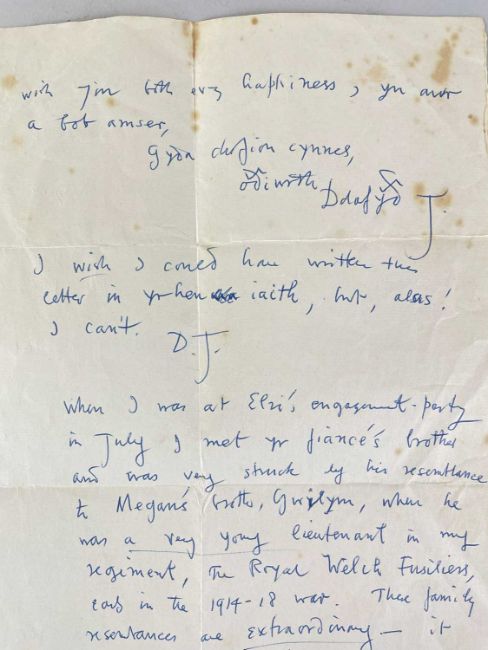 wish you both every happiness, yn awr
a bob amser,
Gyda chofion cynnes,
oddiwrth Ddafydd J.
I wish I could have written this
letter in yr hen iaith, but, alas!
I can't.
D.J.
When I was at Elri's engagement-party
in July I met yr fiancé's brother
and was very struck by his resemblance
to Megan's brother, Gwilym, when he
was a very young lieutenant in my
regiment, The Royal Welch Fusiliers,
early in the 1914-18 war. These family
resemblances are extraordinary — it